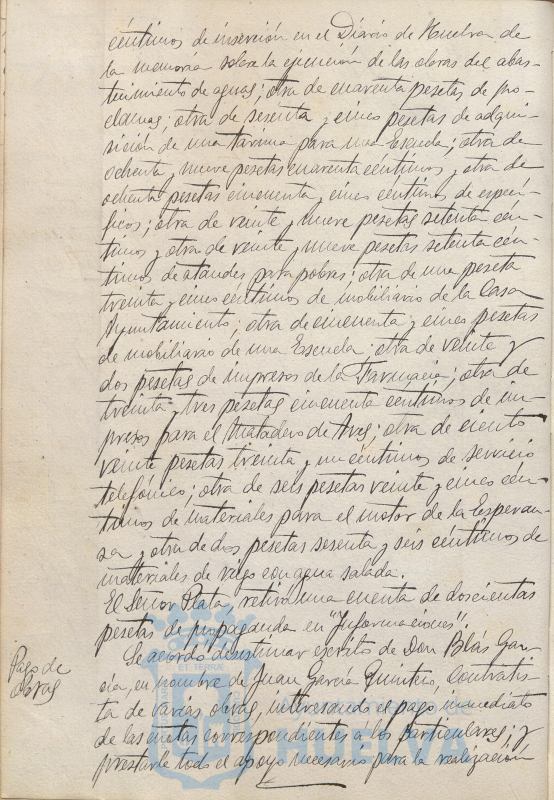 céntimos de inserción en el Diario de Huelva de
la memoria sobre la ejecución de las obras del abas-
tecimiento de aguas; otra de cuarenta pesetas de pro-
clamas; otra de sesenta y cinco pesetas de adqui-
sición de una tarima para una Escuela; otra de
ochenta y nueve pesetas cuarenta céntimos y otra de
ochenta pesetas cincuenta y cinco céntimos de especí-
ficos; otra de veinte y nueve pesetas setenta cén-
timos y otra de veinte y nueve pesetas setenta cén-
timos de ataudes para pobres; otra de una peseta
treinta y cinco céntimos de mobiliario de la Casa
Ayuntamiento; otra de cincuenta y cinco pesetas
de mobiliario de una Escuela; otra de veinte y
dos pesetas de impresos de la Farmacia; otra de
treinta y tres pesetas cincuenta céntimos de im-
presos para el Matadero de Aves; otra de ciento
veinte pesetas treinta y un céntimos de servicio
telefónico; otra de seis pesetas veinte y cinco cén-
timos de materiales para el motor de la Esperan-
za y otra de dos pesetas sesenta y seis céntimos de
materiales de riego con agua salada.
El Señor Plata, retira una cuenta de doscientas
pesetas de propaganda en "Informaciones".
Pago de
obras
Se acordó desestimar escrito de Don Blás Gar-
cía, en nombre de Juan García Quintero, contratis-
ta de varias obras, interesando el pago inmediato
de las cuotas correspondientes á los particulares; y
prestarle todo el apoyo necesario para la realización
HUELVA